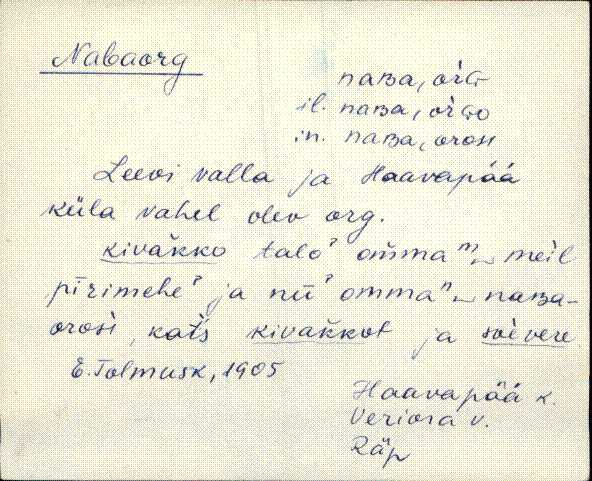 Nabaorg
naʙa, òrɢ
il. naʙa, òrɢo
in. naʙa, orosi
Leevi valla ja Haavapää
küla vahel olev org.
kivak̄ko talo' om̄ma ᵐ‿meìl
pīrimehe' ja nṻ' omma ⁿ‿naʙa-
orosi, kat̕s kivak̄kot ja sòevere
E. Tolmusk, 1905
Haavapää k.
Veriora v.
Räp